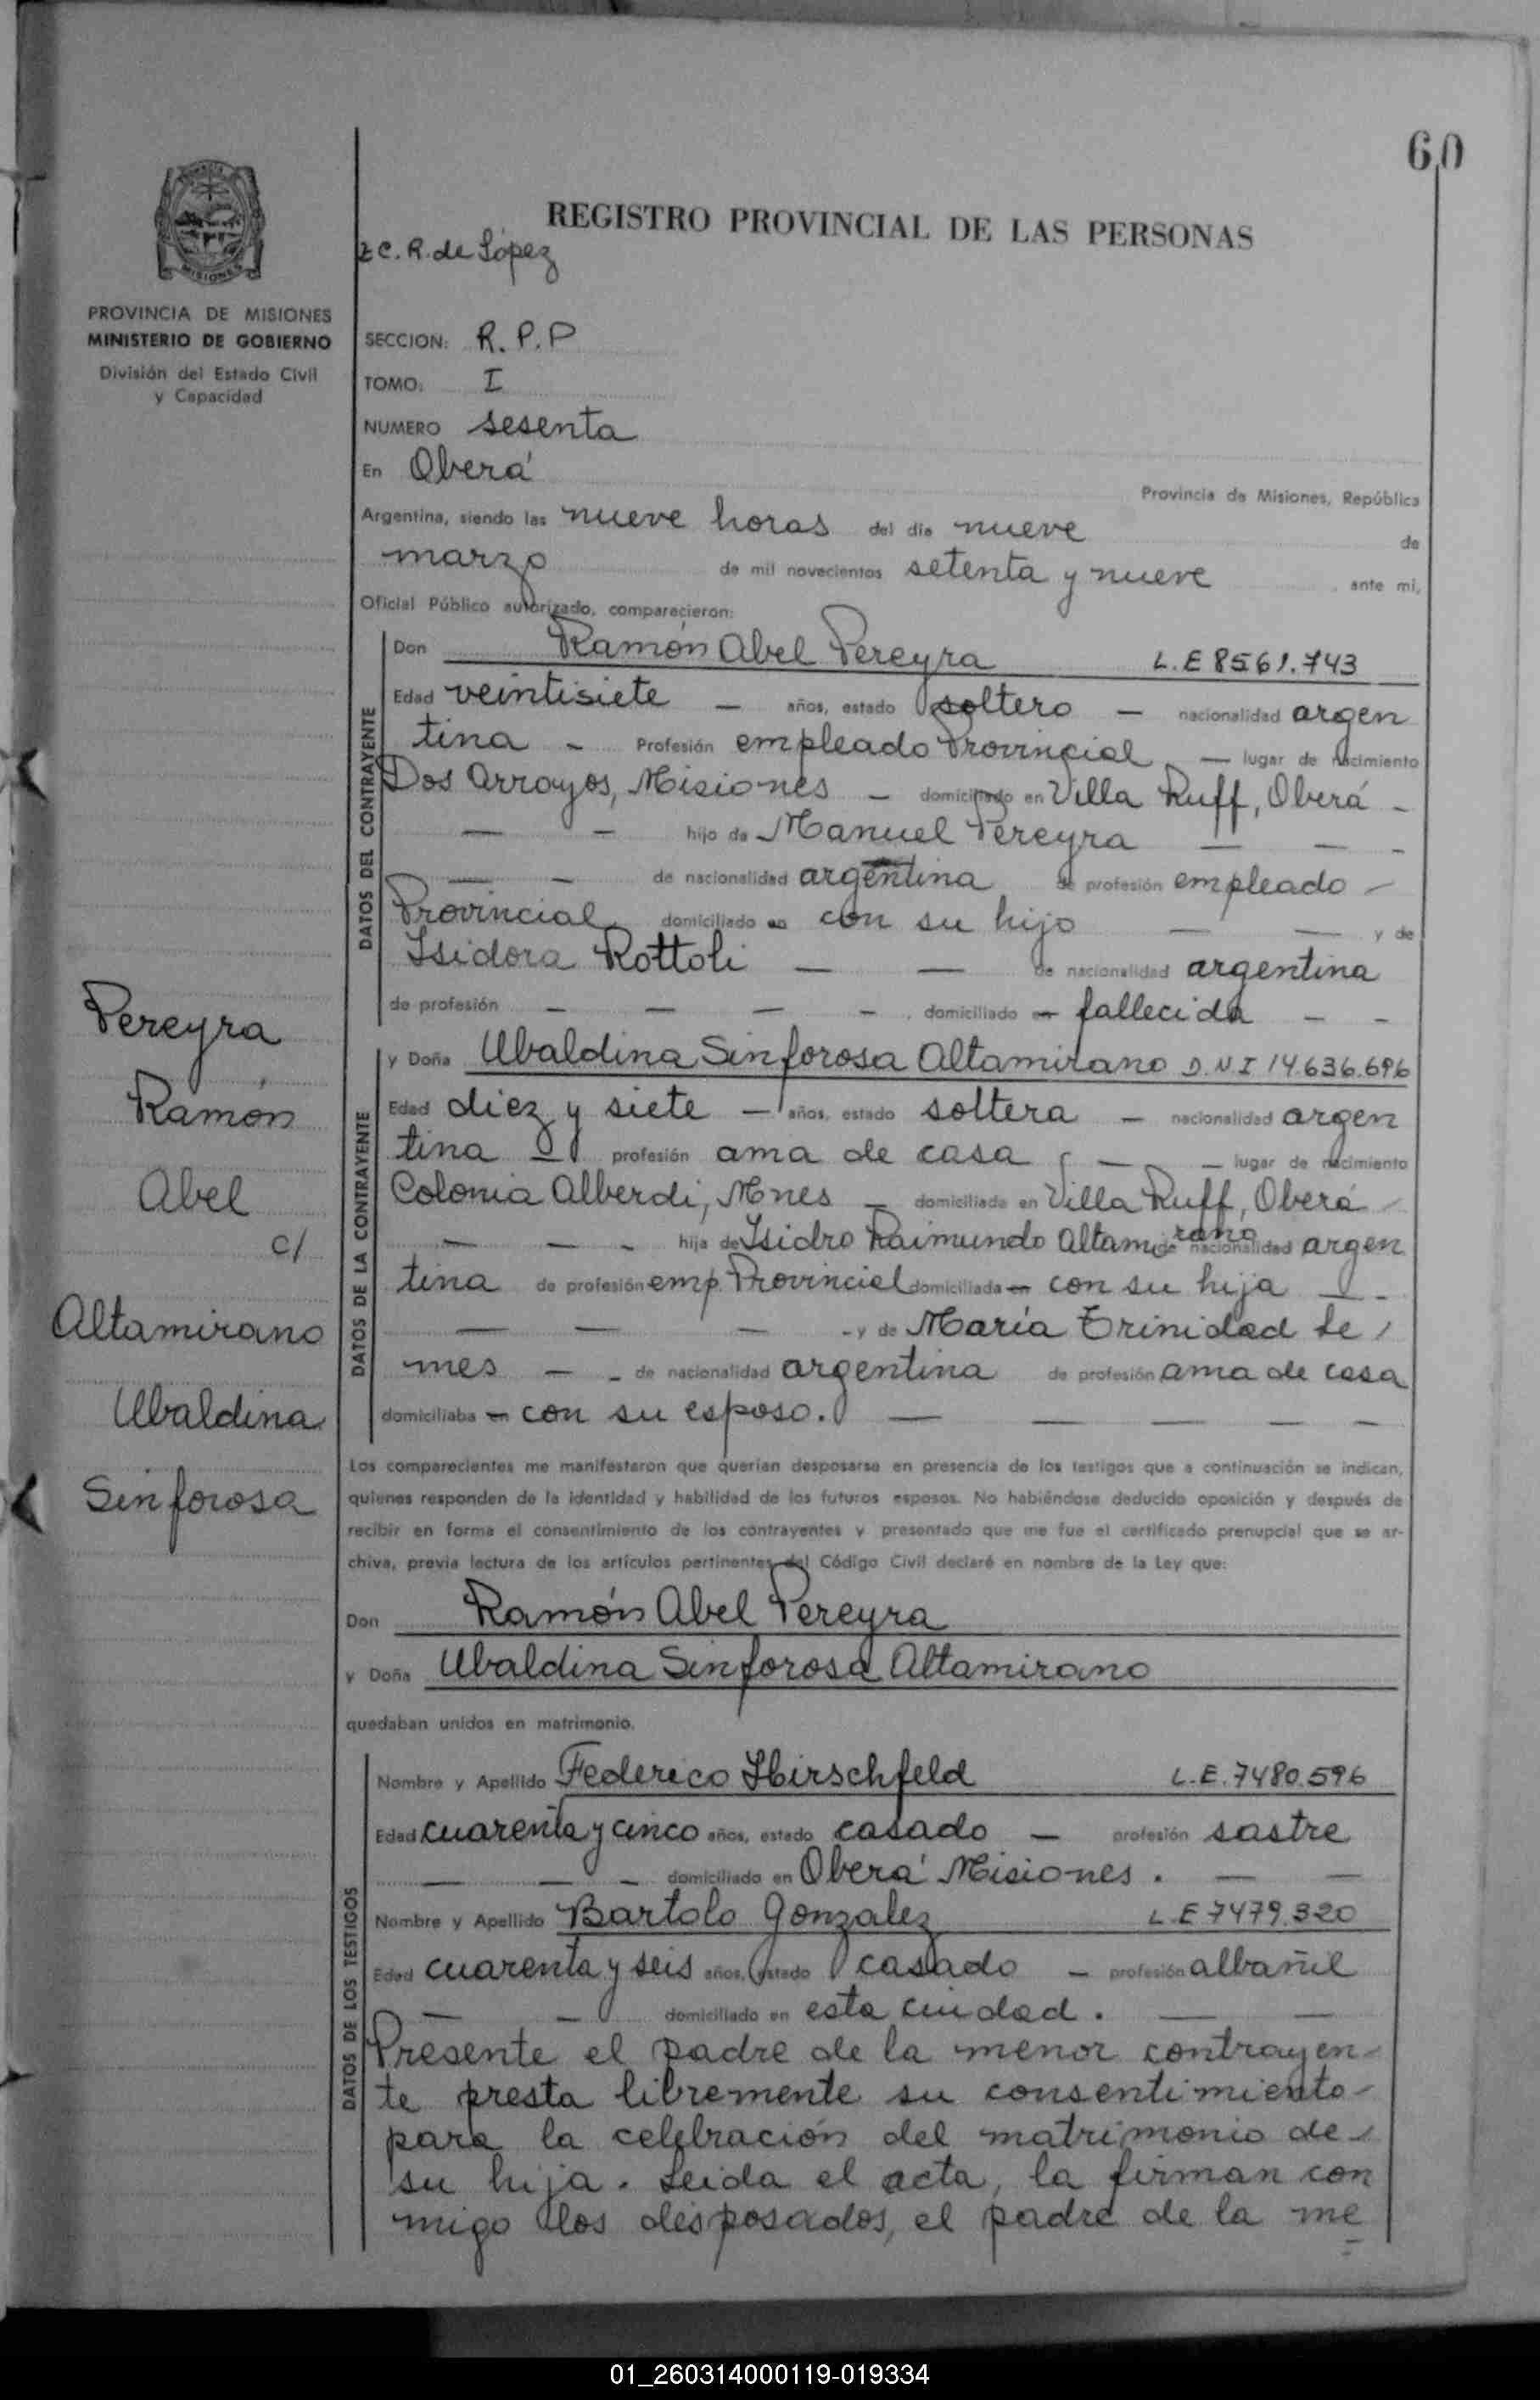 60
REGISTRO PROVINCIAL DE LAS PERSONAS
C. R. de López
MISIONES
PROVINCIA DE MISIONES
MINISTERIO DE GOBIERNO
División del Estado Civil
y Capacidad
SECCION: R. P. P
TOMO: I
NUMERO sesenta
En Oberá
Provincia de Misiones, República
Argentina, siendo las nueve horas del día nueve de
marzo de mil novecientos setenta y nueve, ante mi,
Oficial Público autorizado, comparecieron:
DATOS DEL CONTRAYENTE
Don Ramón Abel Pereyra L.E 8561.743
Edad veintisiete — años, estado soltero — nacionalidad argen
tina - Profesión empleado Provincial — lugar de nacimiento
Dos Arroyos, Misiones — domiciliado en Villa Ruff, Oberá -
— — hijo de Manuel Pereyra — — -
— — de nacionalidad argentina de profesión empleado -
Provincial domiciliado en con su hijo — — y de
Isidora Rottoli — — de nacionalidad argentina
de profesión — — — - domiciliado en fallecida - -
DATOS DE LA CONTRAYENTE
y Doña Ubaldina Sinforosa Altamirano D.N.I 14.636.696
Edad diez y siete — años, estado soltera — nacionalidad argen
tina — profesión ama de casa — — lugar de nacimiento
Colonia Alberdi, Mnes — domiciliada en Villa Ruff, Oberá -
— — - hija de Isidro Raimundo Altamirano de nacionalidad argen
tina de profesión emp. Provincial domiciliada en con su hija — -
— — — - y de María Trinidad Le
mes — - de nacionalidad argentina de profesión ama de casa
domiciliaba en con su esposo. — — — — —
Los comparecientes me manifestaron que querían desposarse en presencia de los testigos que a continuación se indican,
quienes responden de la identidad y habilidad de los futuros esposos. No habiéndose deducido oposición y después de
recibir en forma el consentimiento de los contrayentes y presentado que me fue el certificado prenupcial que se ar-
chiva, previa lectura de los artículos pertinentes del Código Civil declaré en nombre de la Ley que:
Don Ramón Abel Pereyra
y Doña Ubaldina Sinforosa Altamirano
quedaban unidos en matrimonio.
DATOS DE LOS TESTIGOS
Nombre y Apellido Federico Hirschfeld L.E. 7480.596
Edad cuarenta y cinco años, estado casado — profesión sastre
— — - domiciliado en Oberá Misiones. — —
Nombre y Apellido Bartolo Gonzalez L.E 7479.320
Edad cuarenta y seis años, estado casado — profesión albañil
— — domiciliado en esta ciudad. — —
Presente el padre de la menor contrayen-
te presta libremente su consentimiento-
para la celebración del matrimonio de-
su hija. Leida el acta, la firman con
migo los desposados, el padre de la me
Pereyra
Ramón
Abel
c/
Altamirano
Ubaldina
Sinforosa
01_260314000119-019334